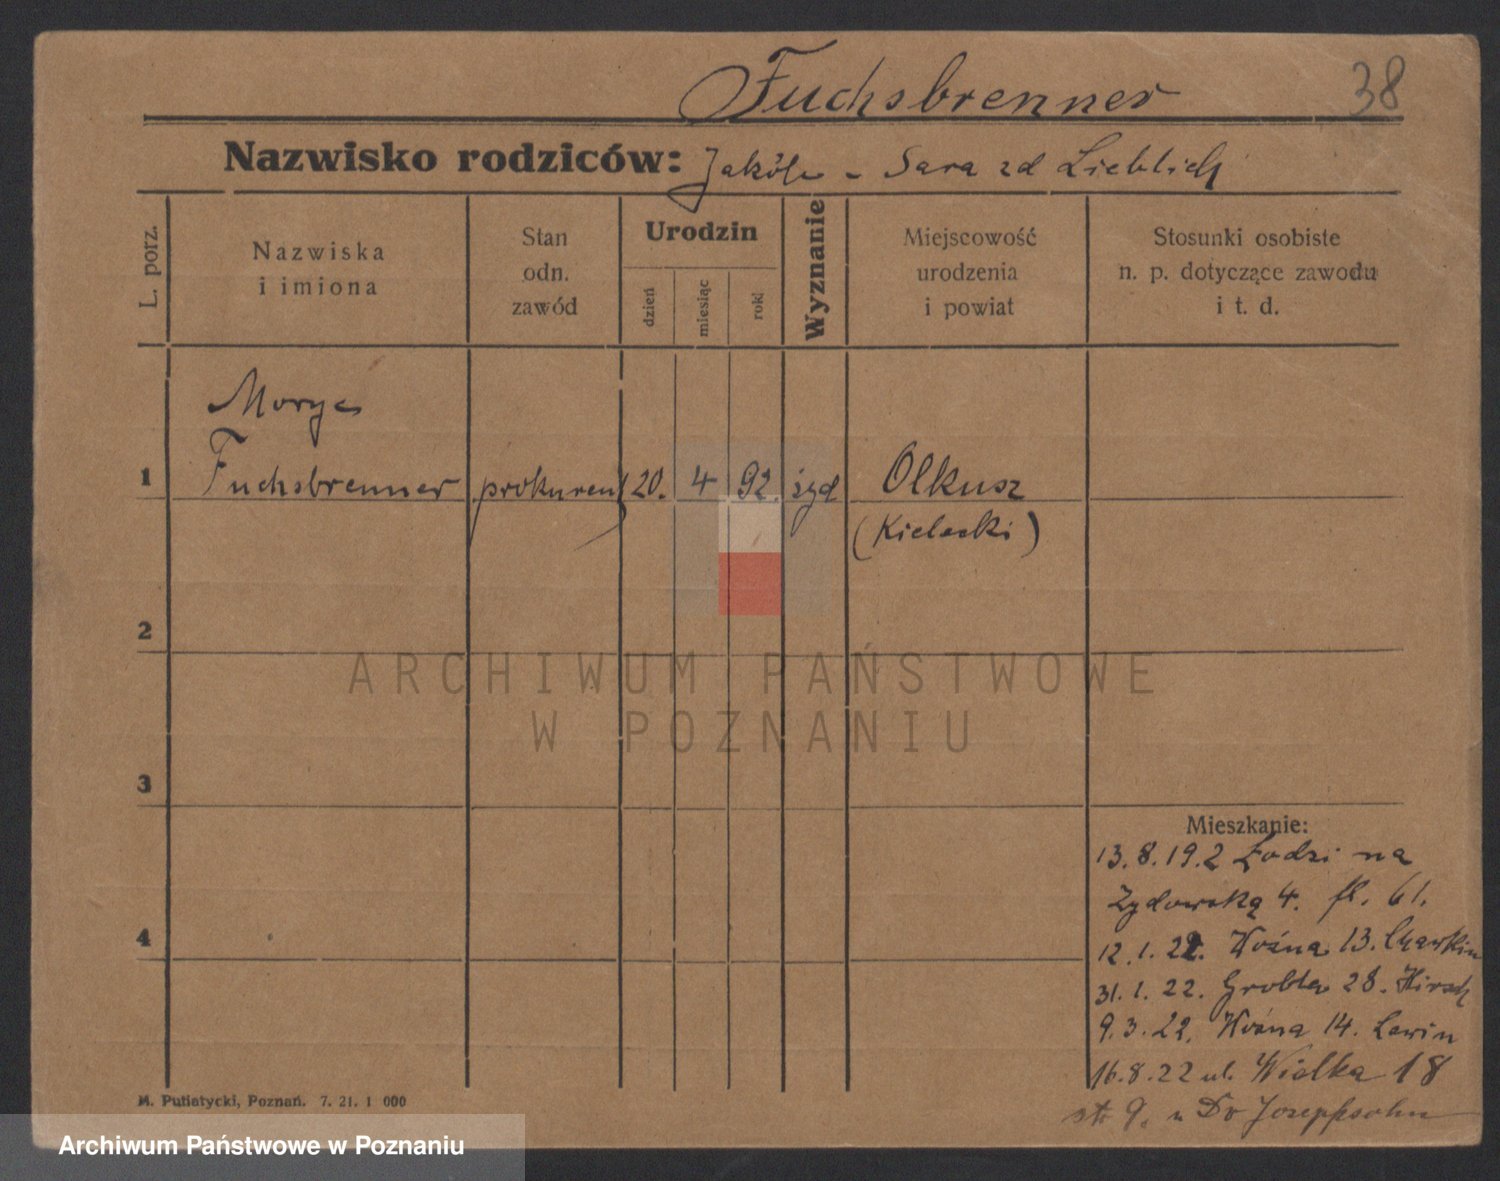 Fuchsbrenner 38
Nazwisko rodziców: Jakób - Sara zd Lieblich
L. porz.
Nazwiska
i imiona
Stan
odn.
zawód
Urodzin
dzień
miesiąc
rok
Wyznanie
Miejscowość
urodzenia
i powiat
Stosunki osobiste
n. p. dotyczące zawodu
i t. d.
Moryc
1 Fuchsbrenner prokurent 20. 4 92. żyd Olkusz
(Kielecki)
2
ARCHIWUM PAŃSTWOWE
W POZNANIU
3
Mieszkanie:
13.8.19.2 Łodzi na
Żydowską 4. 61.
4
12.1.22. Woźna 13.
31.1.22. Grobla 28. Hirsch
9.3.22. Woźna 14. Lewin
16.8.22 ul. Wielka 18
9. u Dr Josephsohn
M. Putiatycki, Poznań. 7. 21. 1 000
Archiwum Państwowe w Poznaniu